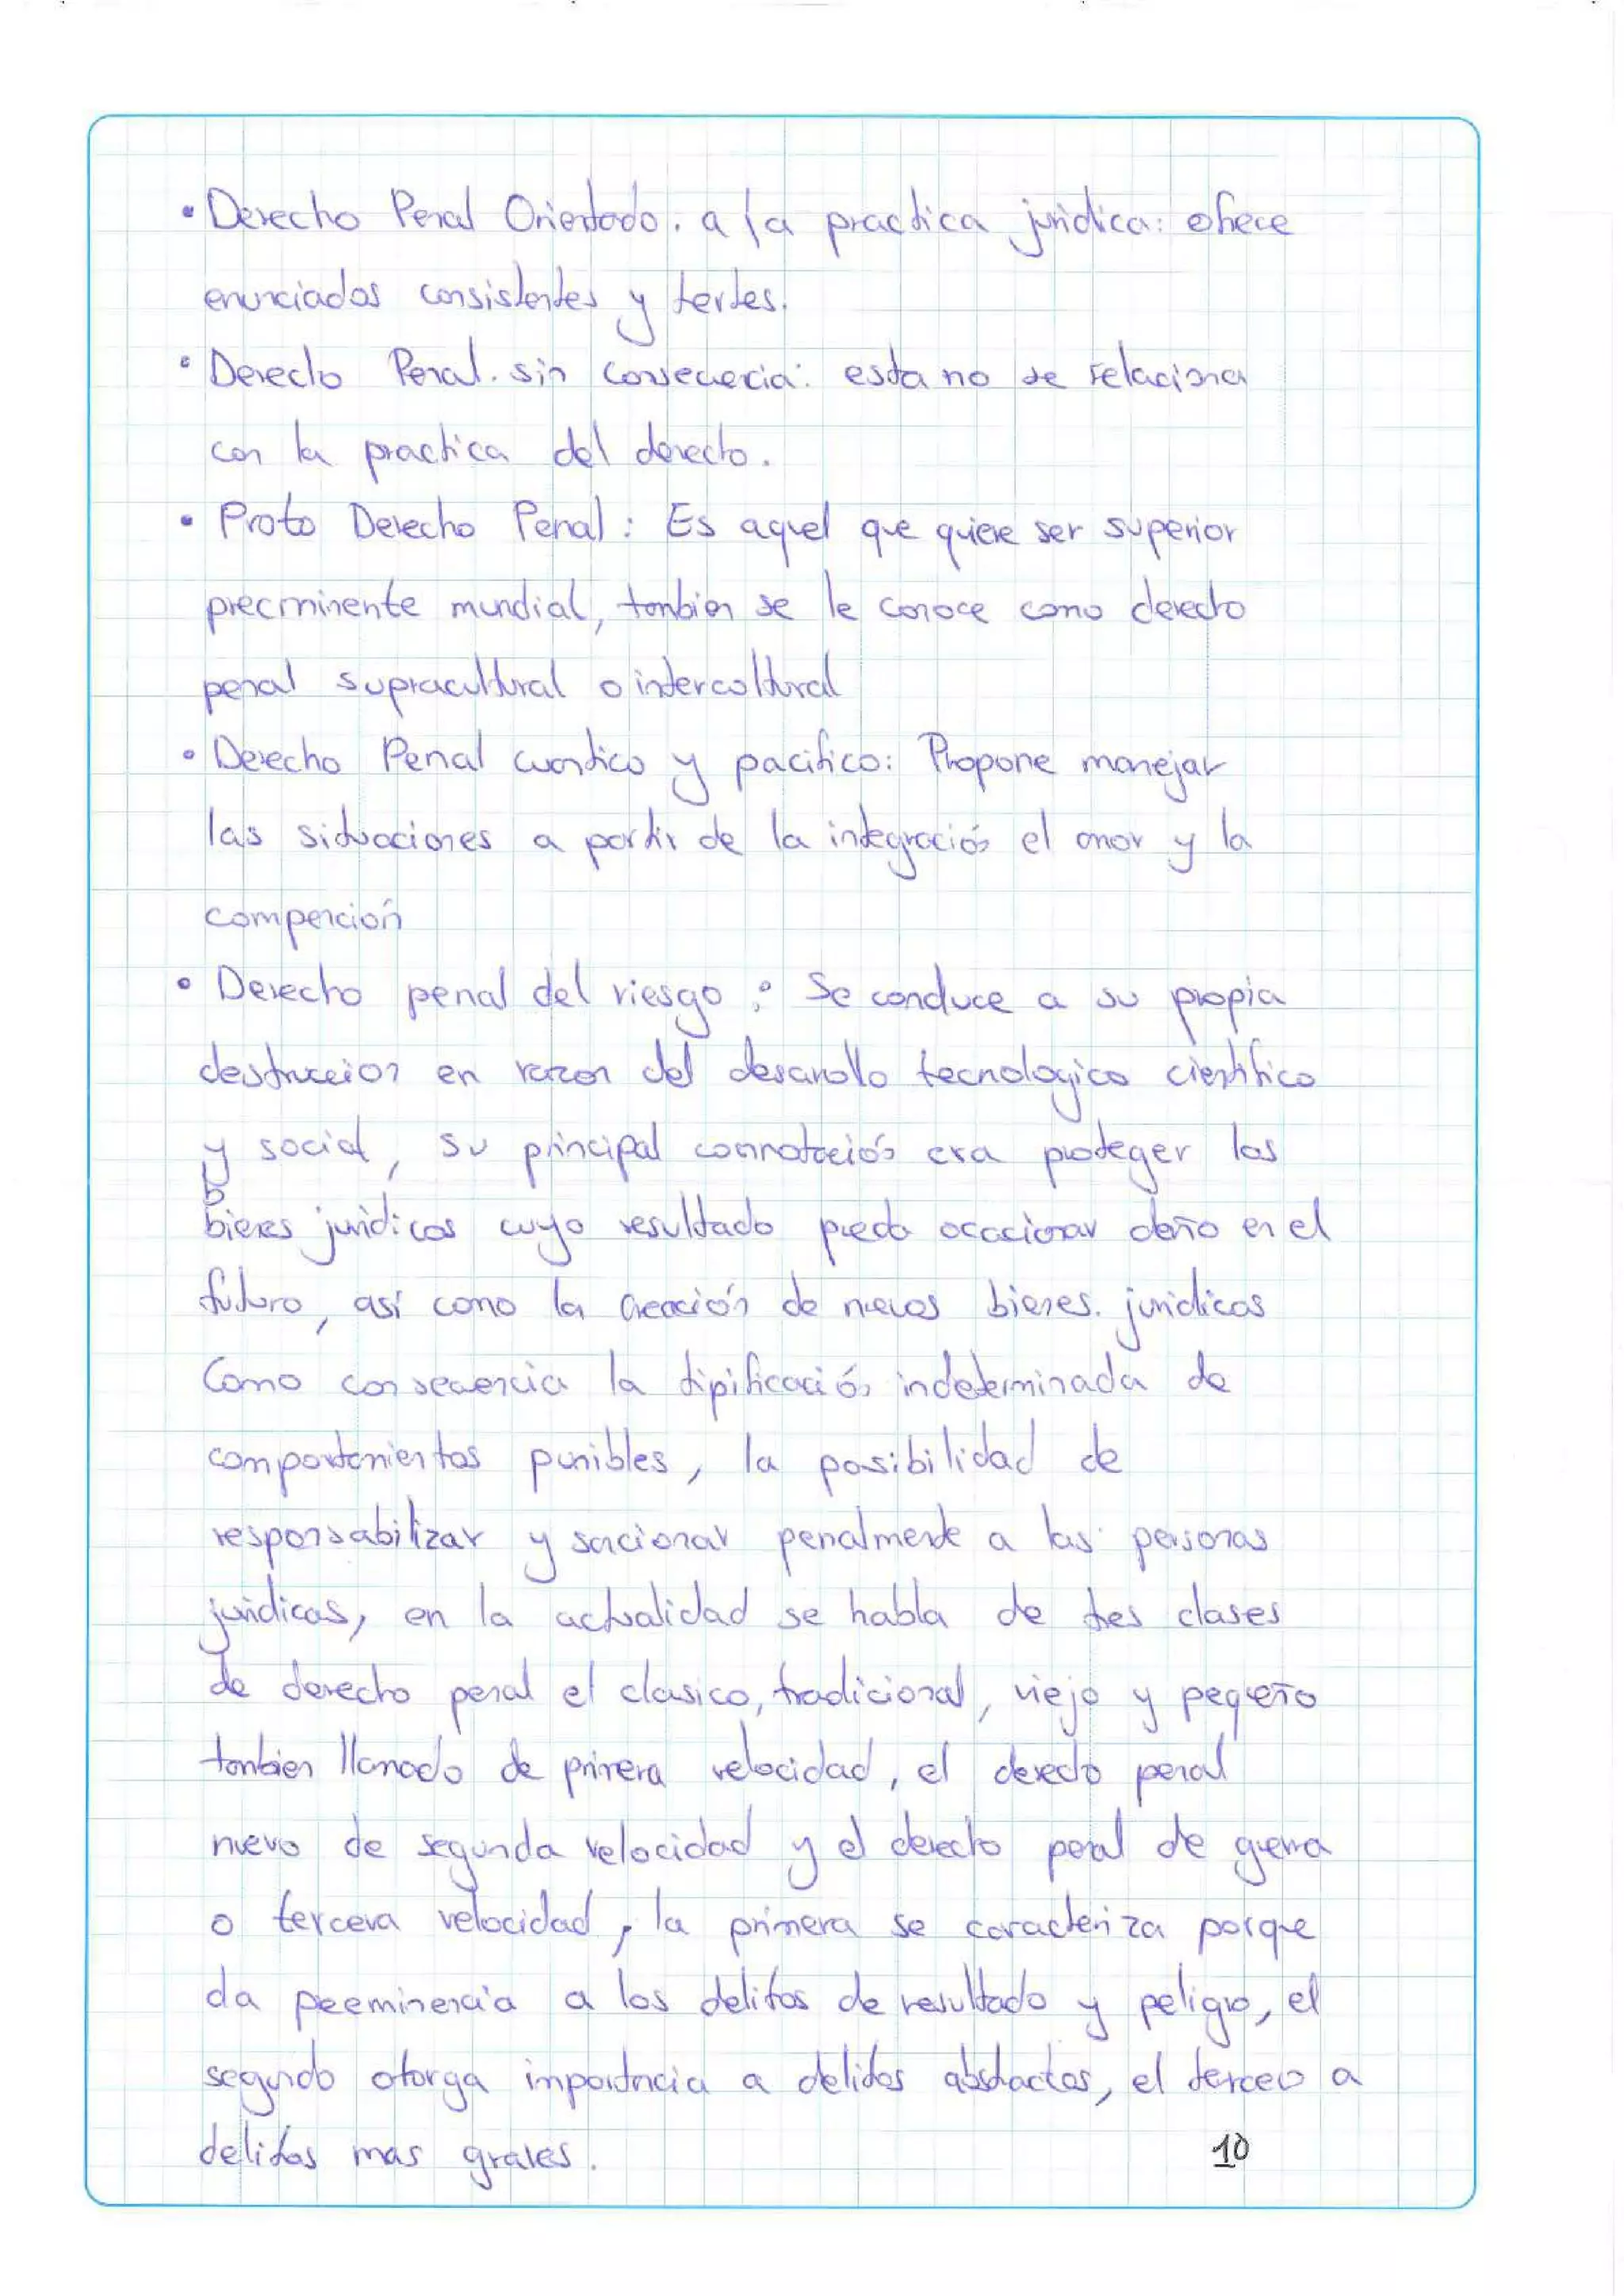 • Derecho Penal Orientado. a la practica juridica: ofrece
enunciados consistentes y fertes.
• Derecho Penal. sin consecuencia: esta no se relaciona
con la practica del derecho.
• Proto Derecho Penal: Es aquel que quiere ser superior
precminente mundial, tambien se le conoce como derecho
penal supracultural o intercoltural
• Derecho Penal cuantico y pacifico: Propone manejar
las situaciones a partir de la integración el amor y la
compención
• Derecho penal del riesgo: Se conduce a su propia
destruccion en razon del desarrollo tecnologico cientifico
y social, su principal connotación era proteger los
bienes juridicos cuyo resultado pueda ocacionar daño en el
futuro, así como la creación de nuevos bienes. juridicos
Como consecuencia la tipificación indeterminada de
comportamientos punibles, la posibilidad de
responsabilizar y sancionar penalmente a las personas
juridicas, en la actualidad se habla de tres clases
de derecho penal el clasico, tradicional, viejo y pequeño
tambien llamado de primera velocidad, el derecho penal
nuevo de segunda velocidad y el derecho penal de guerra
o tercera velocidad, la primera se caracteriza porque
da peeminencia a los delitos de resultado y peligro, el
segundo otorga importancia a delitos abstractos, el tercero a
delitos mas graves.
10